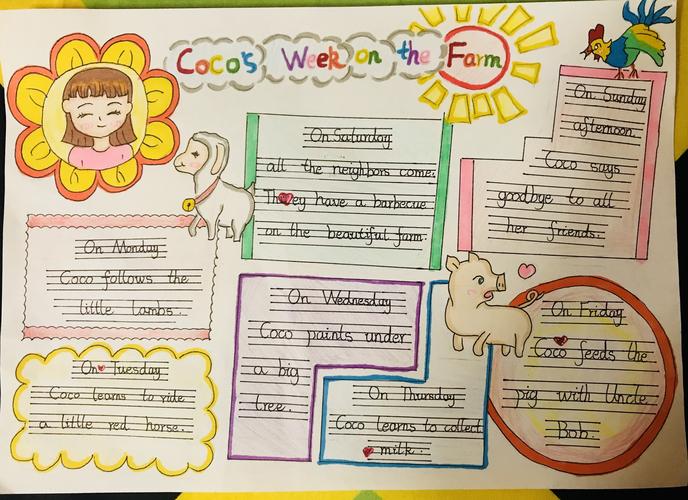 Coco's Week on the Farm
On Monday
Coco follows the
little lambs.
On Tuesday
Coco learns to ride
a little red horse.
On Wednesday
Coco paints under
a big
tree.
On Thursday
Coco learns to collect
milk.
On Friday
Coco feeds the
pig with Uncle
Bob.
On Saturday
all the neighbors come.
They have a barbecue
on the beautiful farm.
On Sunday
afternoon
Coco says
goodbye to all
her friends.